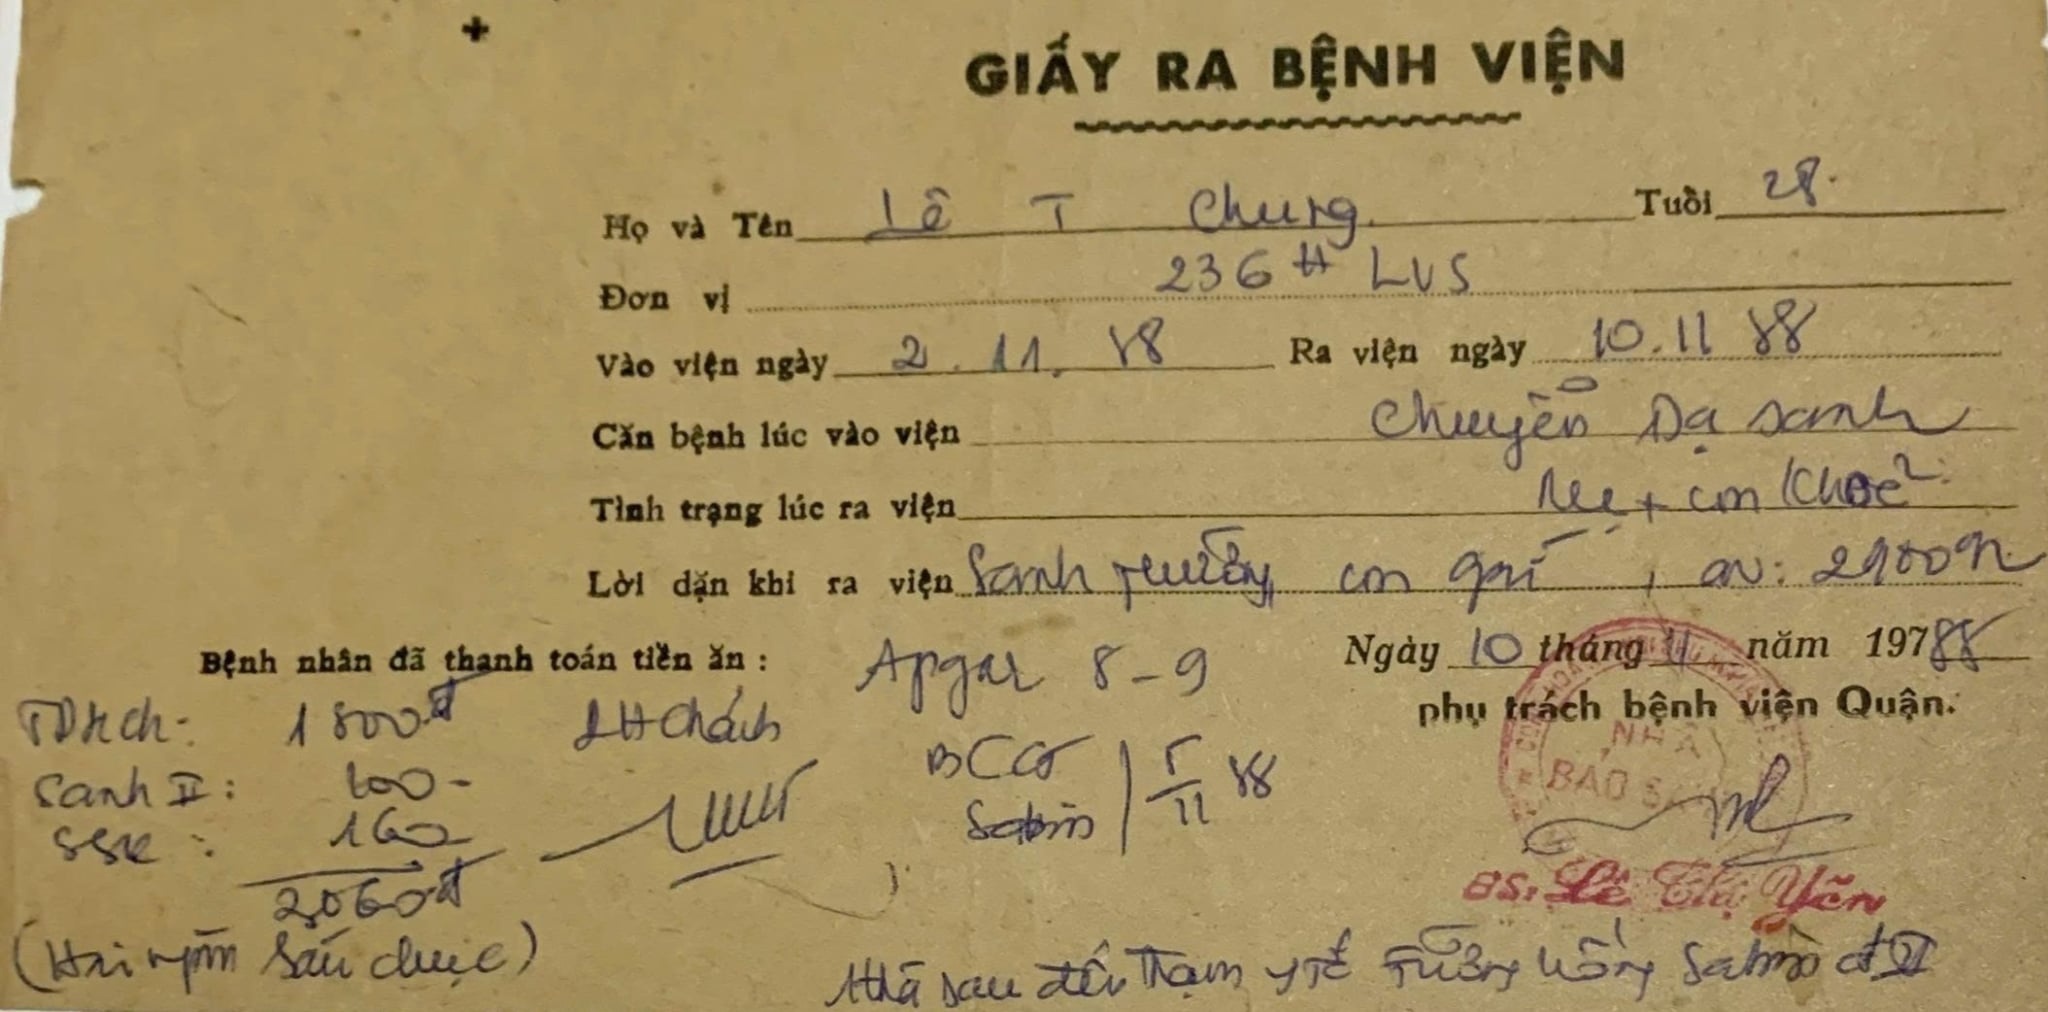 GIẤY RA BỆNH VIỆN
Họ và Tên Lê T Chung Tuổi 28
Đơn vị 236 H LVS
Vào viện ngày 2.11.88 Ra viện ngày 10.11 88
Căn bệnh lúc vào viện Chuyển Dạ sanh
Tình trạng lúc ra viện Mẹ + con Khoẻ
Lời dặn khi ra viện Sanh thường con gái, CN: 2900g
Bệnh nhân đã thanh toán tiền ăn : Apgar 8-9 Ngày 10 tháng 11 năm 19788
phụ trách bệnh viện Quận.
1800đ
Sanh II : 100-
160
2060đ
BCG
Sabin 5/11 88
NHÀ
BẢO SANH
BS. Lê Thị Yến
(Hai ngàn sáu chục)
sau đến Trạm y tế Phường uống Sabin